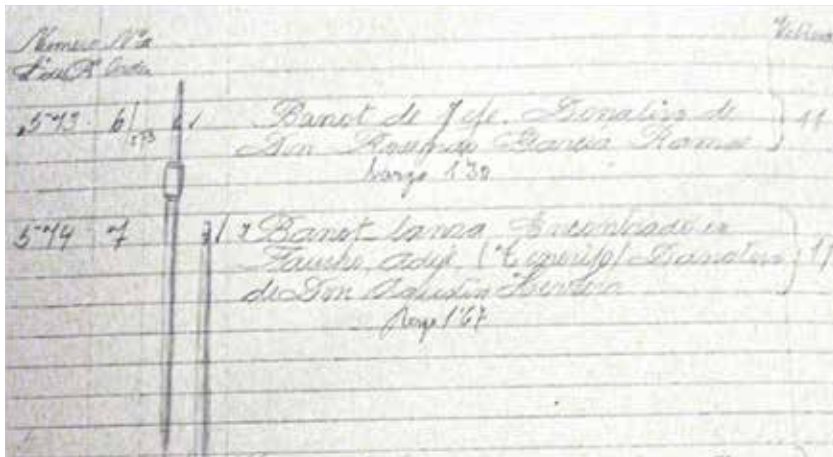 Número Nº de
Orden
Vitrina
573 6/573 6/ Banot de Jefe. Donativo de
Don Rosendo García Ramos
largo 1'30
574 7 7/ Banot lanza Encontrado en
Taucho, Adeje (Tenerife) Donativo
de Don Agustín
largo 1'67